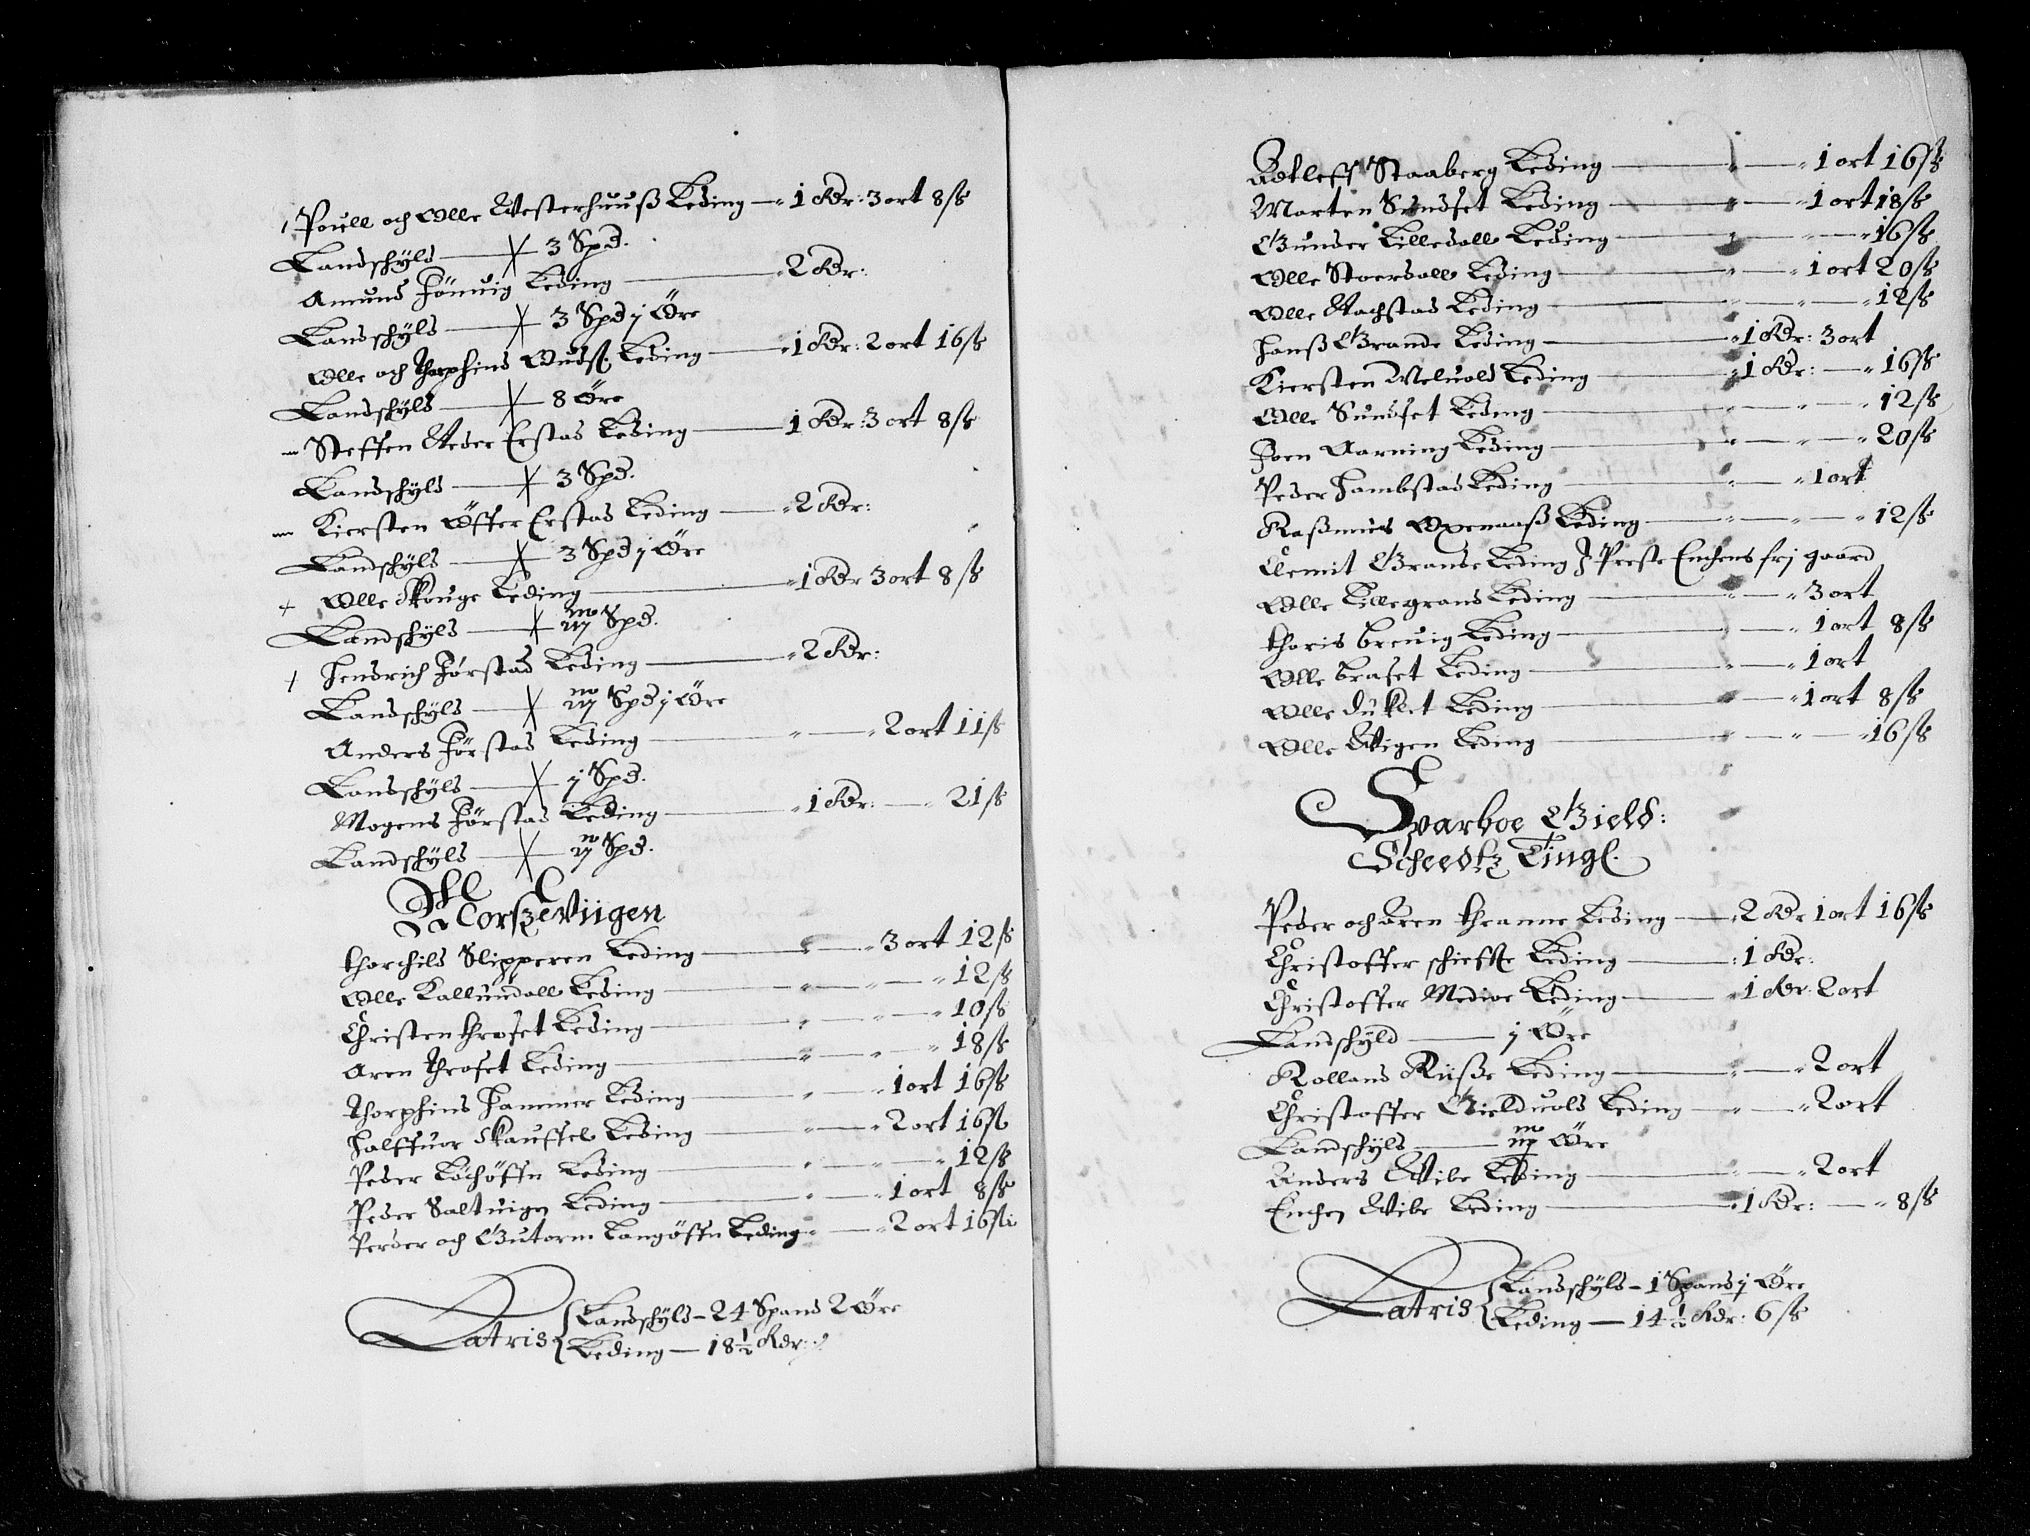 Pouell och Olle Westerhuuß Leding — 1 Rdr: 3 ort 8 ß
Landschyld — 3 Spd.
Amund Hönuig Leding — 2 Rdr:
Landschyld — 3 Spd j Öre
Olle och Thorphind Leding — 1 Rdr: 2 ort 16 ß
Landschyld — 8 Öre
Steffen Neder Erstad Leding — 1 Rdr: 3 ort 8 ß
Landschyld — 3 Spd.
Kiersten Öffter Erstad Leding — 2 Rdr:
Landschyld — 3 Spd j Öre
Olle Skouge Leding — 1 Rdr 3 ort 8 ß
Landschyld — iij Spd.
Hendrich Førstad Leding — 2 Rdr:
Landschyld — iij Spd j Öre
Anders Førstad Leding — 2 ort 11 ß
Landschyld — j Spd.
Mogens Førstad Leding — 1 Rdr: — 21 ß
Landschyld — ij Spd.
Korßewiigen
Thorchild Slipperen Leding — 3 ort 12 ß
Olle Kallundall Leding — 12 ß
Christen throset Leding — 10 ß
Aren throset Leding — 18 ß
Thorphind Hammer Leding — 1 ort 16 ß
Halffuor Skauffel Leding — 2 ort 16 ß
Peder Löchöffn Leding — 12 ß
Peder Saltuign Leding — 1 ort 8 ß
Peder och Gutorm Langöffn Leding — 2 ort 16 ß
Latris { Landschyld – 24 Spand 2 Öre
Leding — 18 ½ Rdr:
Detleff Staaberg Leding — 1 ort 16 ß
Morten Sundset Leding — 1 ort 18 ß
Gunder Lilledall Leding — 16 ß
Olle Stoerdall Leding — 1 ort 20 ß
Olle Nachstad Leding — 12 ß
Hanß Grande Leding — 1 Rdr: 3 ort
Kiersten Meluold Leding — 1 Rdr: — 16 ß
Olle Sundset Leding — 12 ß
Joen Aarning Leding — 20 ß
Peder Hambstad Leding — 1 ort
Raßmus Oxenaaß Leding — 12 ß
Clemit Grande Leding J Preste Enchens frj gaard
Olle Lillegrand Leding — 3 ort
thoris breuig Leding — 1 ort 8 ß
Olle braset Leding — 1 ort
Olle Leding — 1 ort 8 ß
Olle Wigen Leding — 16 ß
Svarboe Gield:
Scheedtz Tingl.
Peder och Øren thranne Leding — 2 Rdr 1 ort 16 ß
Christoffer schieffte Leding — 1 Rdr:
Christoffer Medioe Leding — 1 Rdr: 2 ort
Landschyld — j Öre
Rolland Riiße Leding — 2 ort
Christoffer Gielduold Leding — 2 ort
Landschyld — ij Öre
Anders Wibe Leding — 2 ort
Enchen Wibe Leding — 1 Rdr: — 8 ß
Latris { Landschyld – 1 Spand j Öre
Leding — 14 ½ Rdr: 6 ß